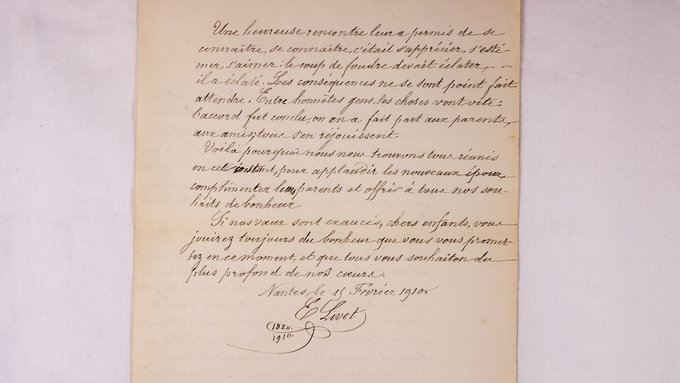 Une heureuse rencontre leur a permis de se
connaître, se connaître, c'était s'apprécier, s'esti-
mer, s'aimer : le coup de foudre devait éclater, —
il a éclaté. Les conséquences ne se sont point fait
attendre. Entre honnêtes gens les choses vont vite :
l'accord fut conclu ; on en a fait part aux parents,
aux amis ; tous s'en réjouissent.
Voilà pourquoi nous nous trouvons tous réunis
en cet instant, pour applaudir les nouveaux époux,
complimenter leurs parents et offrir à tous nos sou-
haits de bonheur.
Si nos vœux sont exaucés, chers enfants, vous
jouirez toujours du bonheur que vous vous promet-
tez en ce moment, et que tous vous souhaiton du
plus profond de nos cœurs.
Nantes, le 15 Février 1910.
E Livet
1820.
1910.